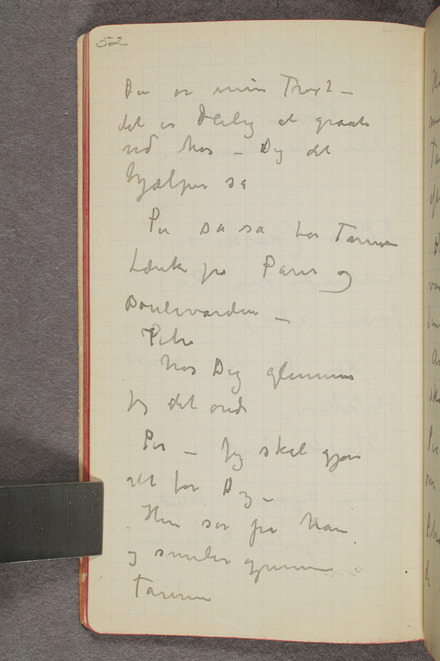 52
Du er min Trøst –
det er deilig at graate
ud hos – Dig det
hjælper sa
Per sa sa tør Taarerne
tænk pa Paris og
Boulevarden –
Hos Dig glemmer
jeg det onde
Per – Jeg skal gjøre
alt for Dig –
Hun ser pa ham
og smiler gjennem
Taarerne